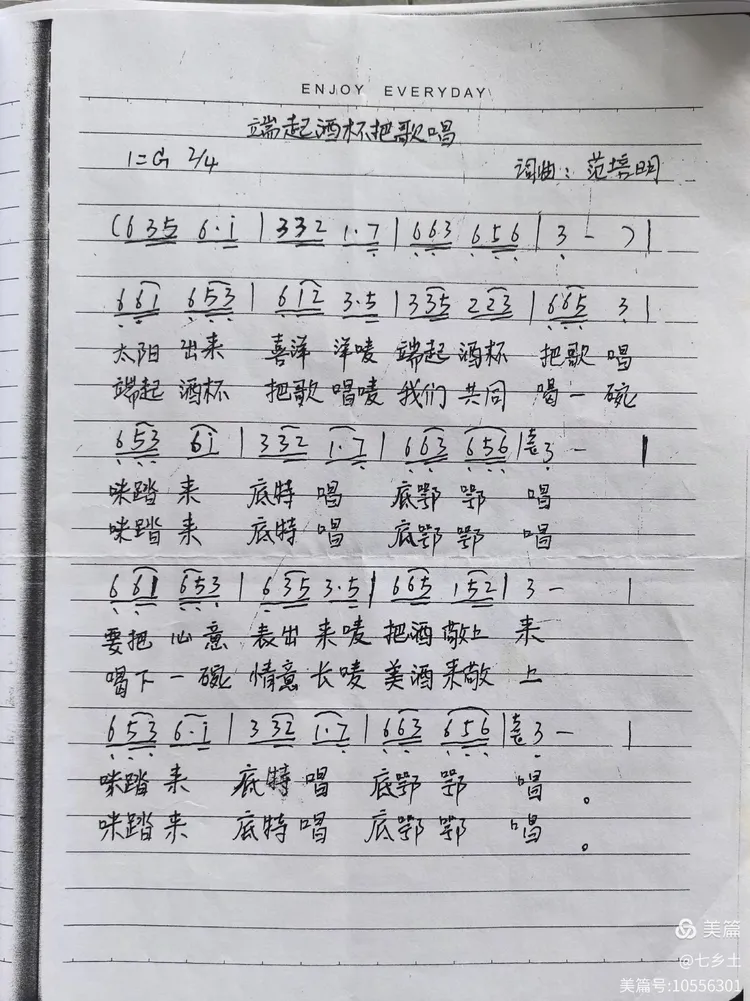 ENJOY EVERYDAY
端起酒杯把歌唱
1=G 2/4 词曲：范培明
(635 6·i | 332 1·7 | 663 656 | 3 - ) |
661 653 | 612 3·5 | 335 223 | 665 3 |
太阳 出来 喜洋 洋唛 端起 酒杯 把歌 唱
端起 酒杯 把歌 唱唛 我们 共同 喝一 碗
653 6i | 332 1·7 | 663 656 | 3 - |
咪踏 来 底特 唱 底鄂 鄂 唱
咪踏 来 底特 唱 底鄂 鄂 唱
661 653 | 635 3·5 | 665 152 | 3 - |
要把 心意 表出 来唛 把酒 敬上 来
喝下 一碗 情意 长唛 美酒 来敬 上
653 6·i | 332 1·7 | 663 656 | 3 - |
咪踏 来 底特 唱 底鄂 鄂 唱。
咪踏 来 底特 唱 底鄂 鄂 唱。
美篇
@七乡土
美篇号:10556301